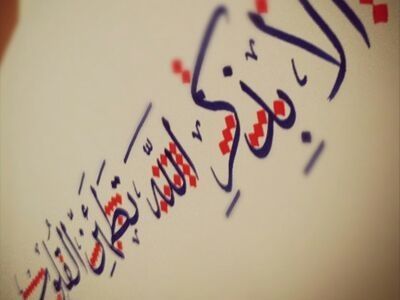 ألا بِذِكْرِ اللَّهِ تَطْمَئِنُّ القُلُوبُ